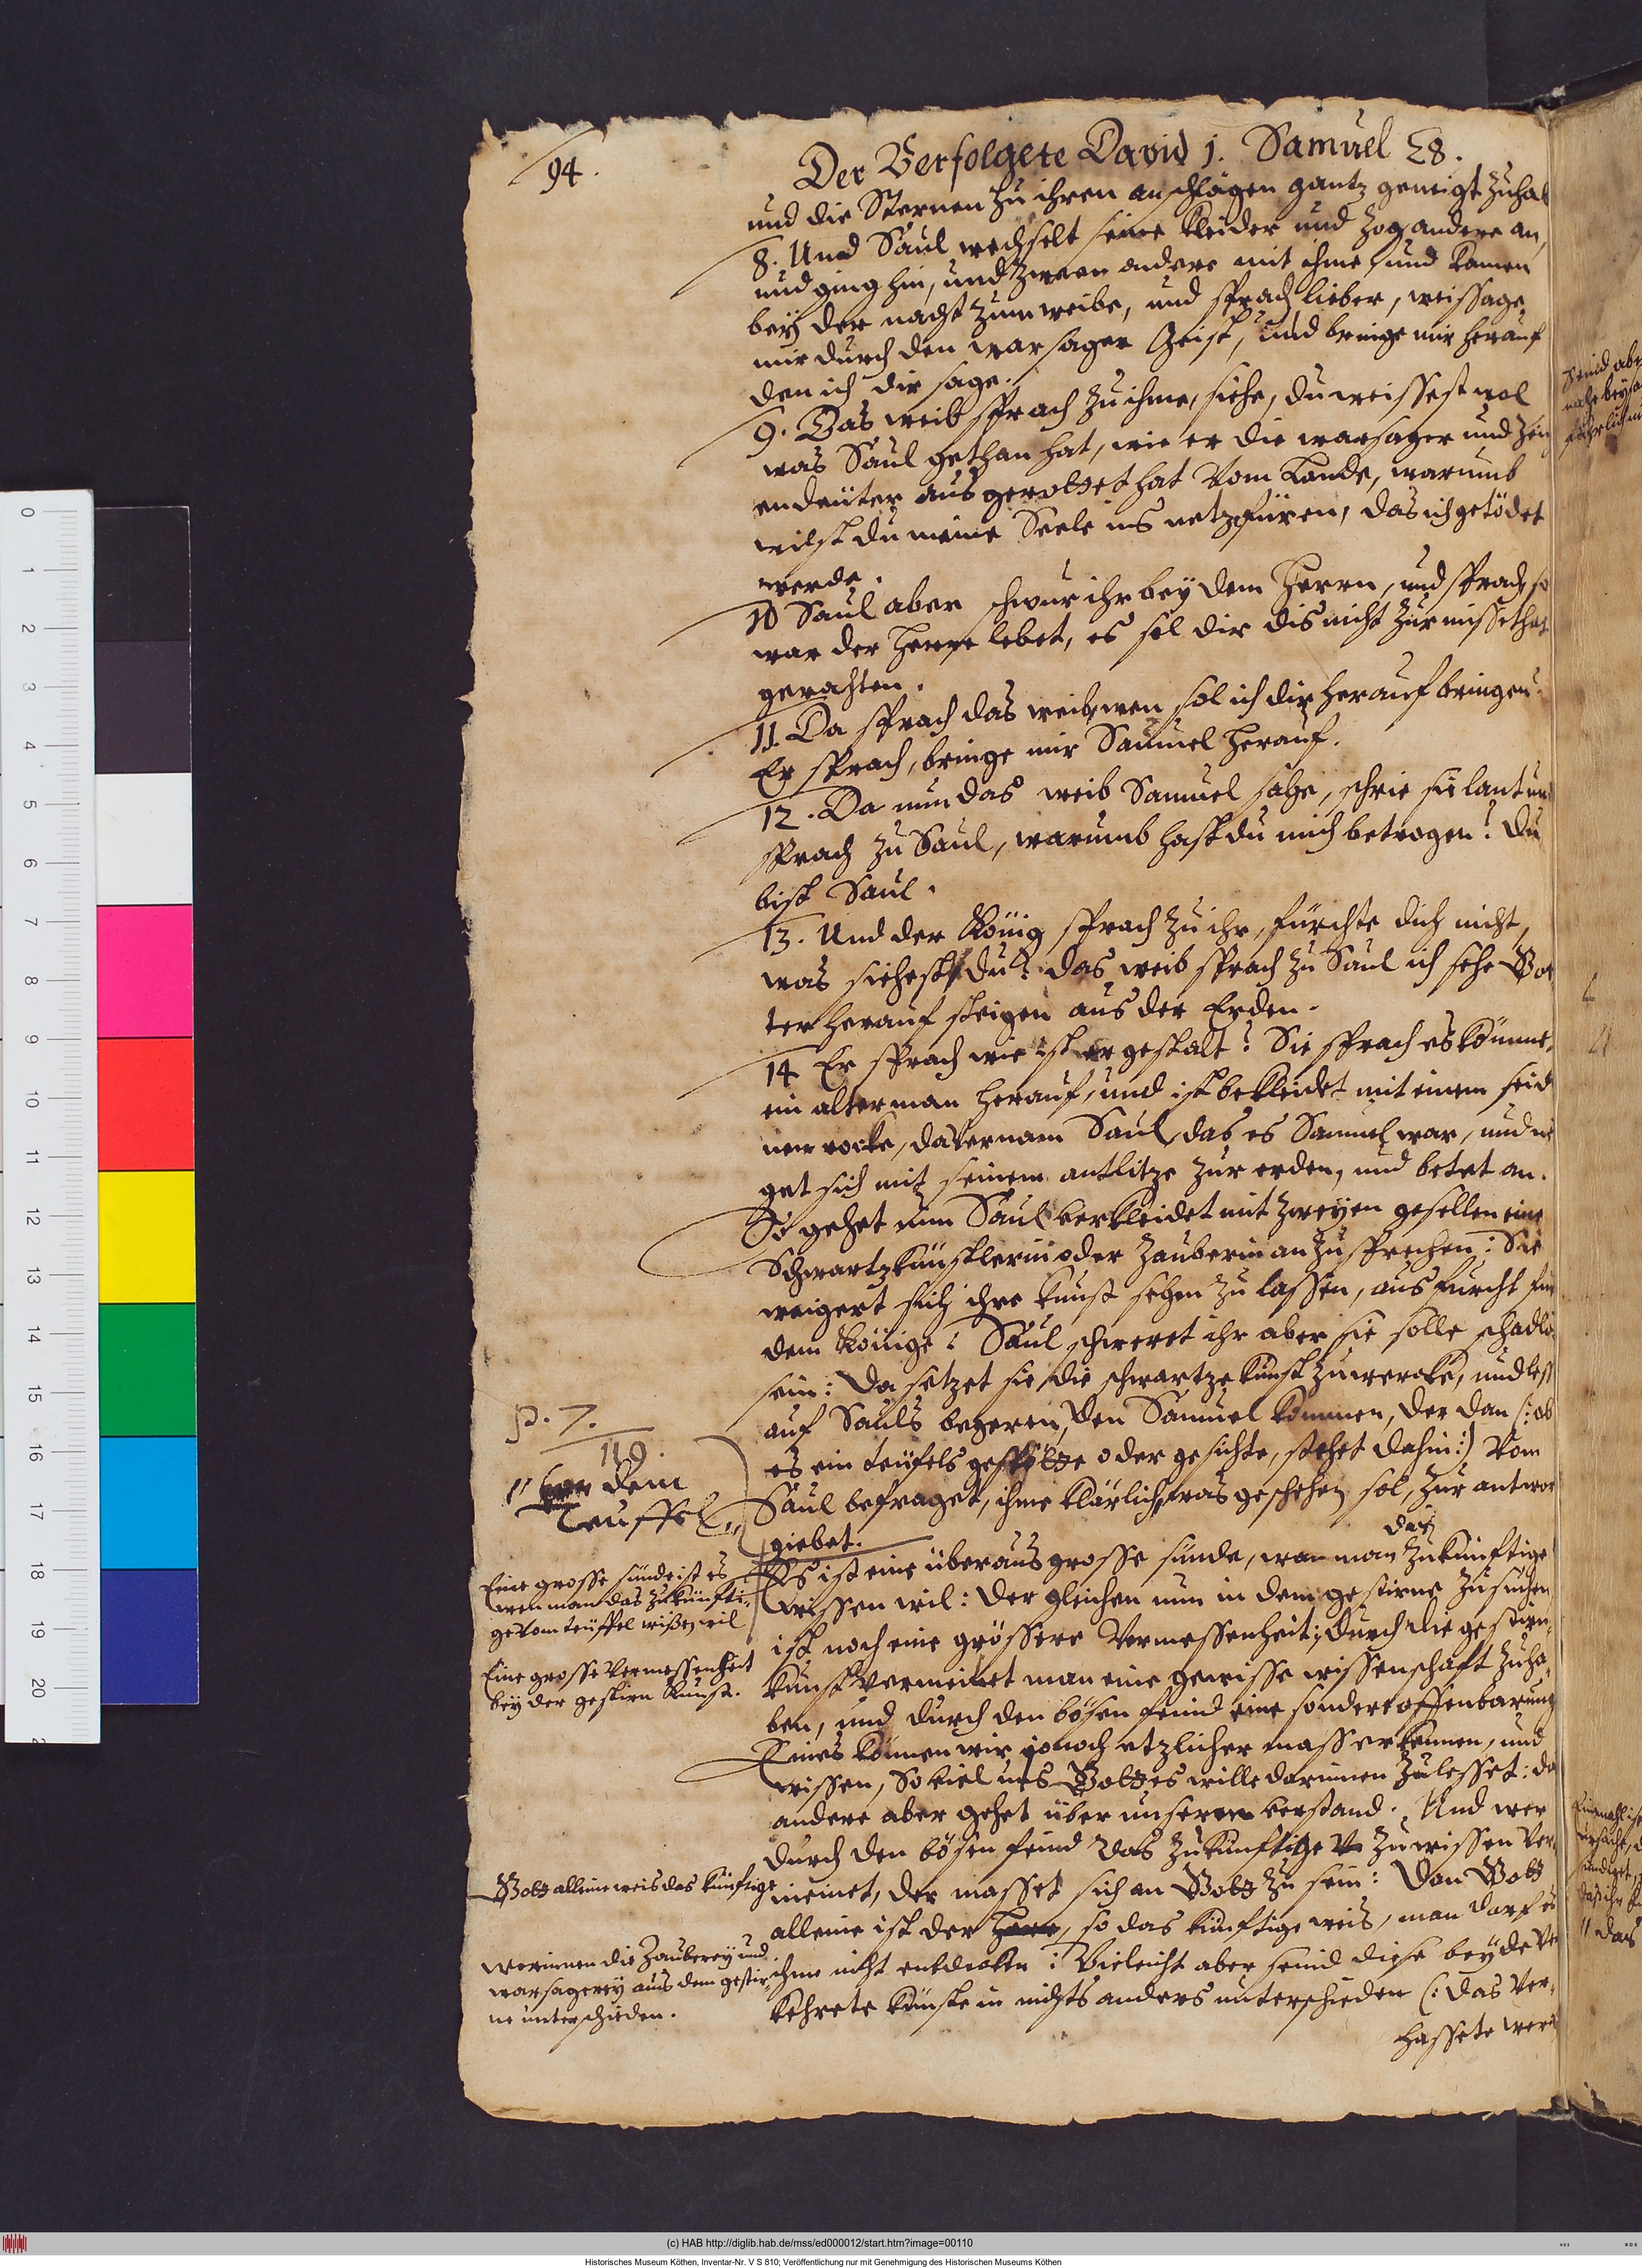 94.
Der Verfolgete David 1. Samuel 28.
und die Sternen zu ihren anschlägen gantz geneigt zuhab
8. Und Saul wechselt seine kleider und zog andere an,
und ging hin, und zween andere mit ihme, und kamen
bey der nacht zum weibe, und sprach lieber, weissage
mir durch den warsager Geist, und bringe mir herauf
den ich dir sage.
9. Das weib sprach zu ihme, siehe, du weissest wol
was Saul gethan hat, wie er die warsager und zeich
endeuter ausgerottet hat vom Lande, warumb
wilst du meine Seele ins netz füren, das ich getödet
werde.
10 Saul aber schwur ihr bey dem Herrn, und sprach, so
war der Herre lebet, es sol dir dis nicht zur missethat
gerahten.
11. Da sprach das weib, wen sol ich dir herauf bringen
Er sprach, bringe mir Samuel herauf.
12. Da nun das weib Samuel sahe, schrie sie laut und
sprach zu Saul, warumb hast du mich betrogen? du
bist Saul.
13. Und der König sprach zu ihr, fürchte dich nicht,
was siehest du? das weib sprach zu Saul ich sehe Göt
ter herauf steigen aus der Erden.
14 Er sprach wie ist er gestalt? Sie sprach es kömme,
ein alter man herauf, und ist bekleidet mit einem seid
nem rocke, da vernam Saul, das es Samuel war, und nei
get sich mit seinem antlitze zur erden, und betet an.
So gehet nun Saul verkleidet mit zweyen gesellen eine
Schwartzkünstlerin oder Zauberin an zu sprechen: Sie
weigert sich ihre kunst sehen zu lassen, aus furcht für
dem Könige: Saul schweret ihr aber sie solle schadlo
sein: Da setzet sie die schwartze kunst zu wercke, und lest
auf Sauls begeren, den Samuel kommen, der dan (: ob
es ein teufels gespötte oder gesichte, stehet dahin:) vom
Saul befraget, ihme klärlich, was geschehen sol, zur antwor
giebet.
p. 7.
119.
" von dem
Teuffel "
das
Es ist eine überaus grosse sünde, wan man zukünftige
wissen wil: der gleichen nun in dem gestirne zu suchen
ist noch eine grössere Vermessenheit; durch die gestirn
kunst vermeinet man eine gewisse wissenschaft zu ha,
ben, und durch den bösen feind eine sondere offenbarung
Eines können wir ja noch etzlicher mass erkennen, und
wissen, So viel uns Gottes wille darinnen zulesset: da
andere aber gehet über unseren verstand. Und wer
durch den bösen feind das zukünftige zu wissen ver
meinet, der masset sich an Gott zu sein: Dan Gott
alleine ist der Herr, so das künftige weis, man darf es
ihme nicht entdecken: Vieleicht aber seind diese beyde ver
kehrete künste in nichts anders unterschieden (: das ver,
hassete wer
Eine grosse sünde ist es
wen man das zukünfti,
ge vom teuffel wissen wil
Eine grosse Vermessenheit
bey der gestirn kunst.
Gott alleine weis das künftige
worinnen die Zauberey und
warsagerey aus dem gestir,
ne unterschieden.
Seind abe
" das
0 1 2 3 4 5 6 7 8 9 10 11 12 13 14 15 16 17 18 19 20
(c) HAB http://diglib.hab.de/mss/ed000012/start.htm?image=00110
Historisches Museum Köthen, Inventar-Nr. V S 810; Veröffentlichung nur mit Genehmigung des Historischen Museums Köthen